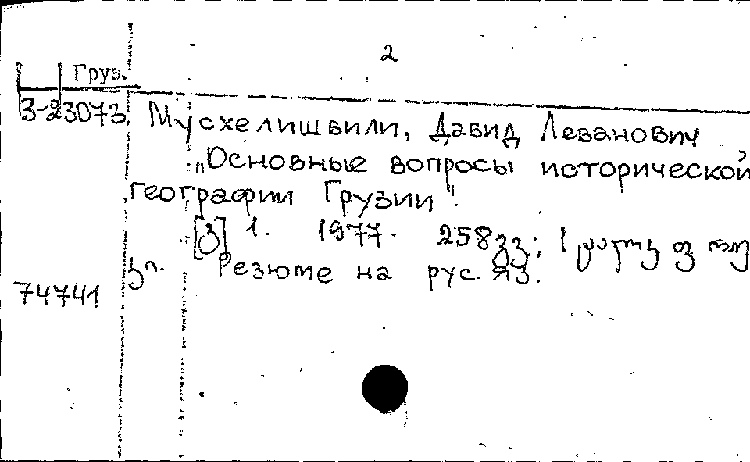 2
Груз.
3-23073 Мусхелишвили, Давид Леванович
"Основные вопросы исторической
географии Грузии".
[3] 1. 1977. 258 გვ.; 1
Резюме на рус. яз.
74741